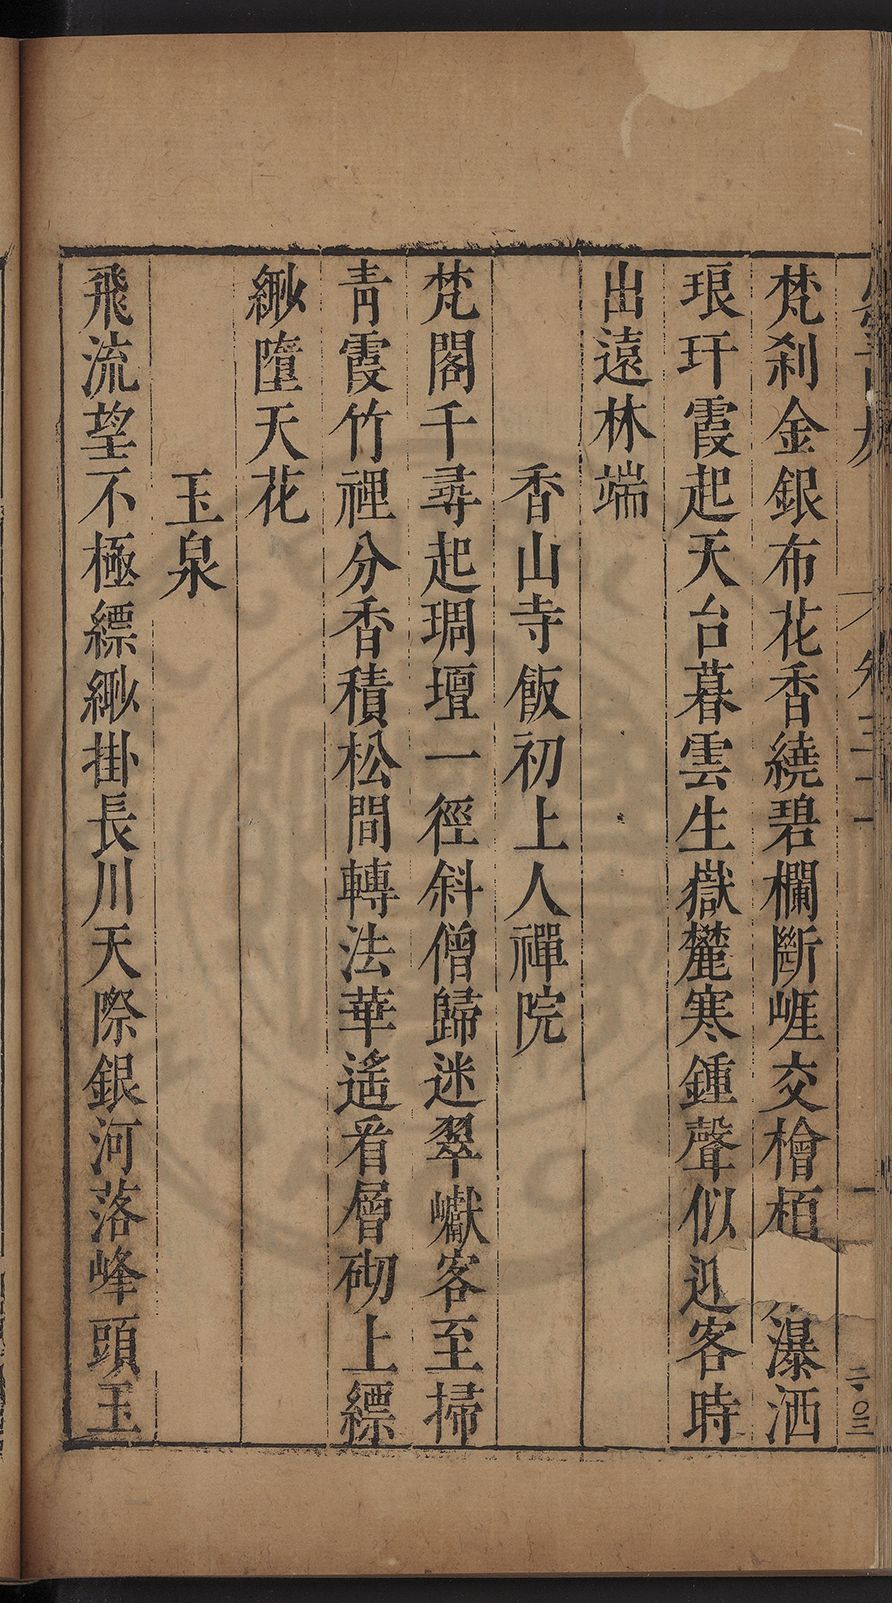 梵刹金銀布花香繞碧欄斷崕交檜栢瀑洒
琅玕霞起天台暮雲生嶽麓寒鍾聲似近客時
出遠林端
香山寺飯初上人禪院
梵閣千尋起琱壇一徑斜僧歸迷翠巘客至掃
青霞竹裡分香積松間轉法華遙看層砌上縹
緲墮天花
玉泉
飛流望不極縹緲掛長川天際銀河落峰頭玉